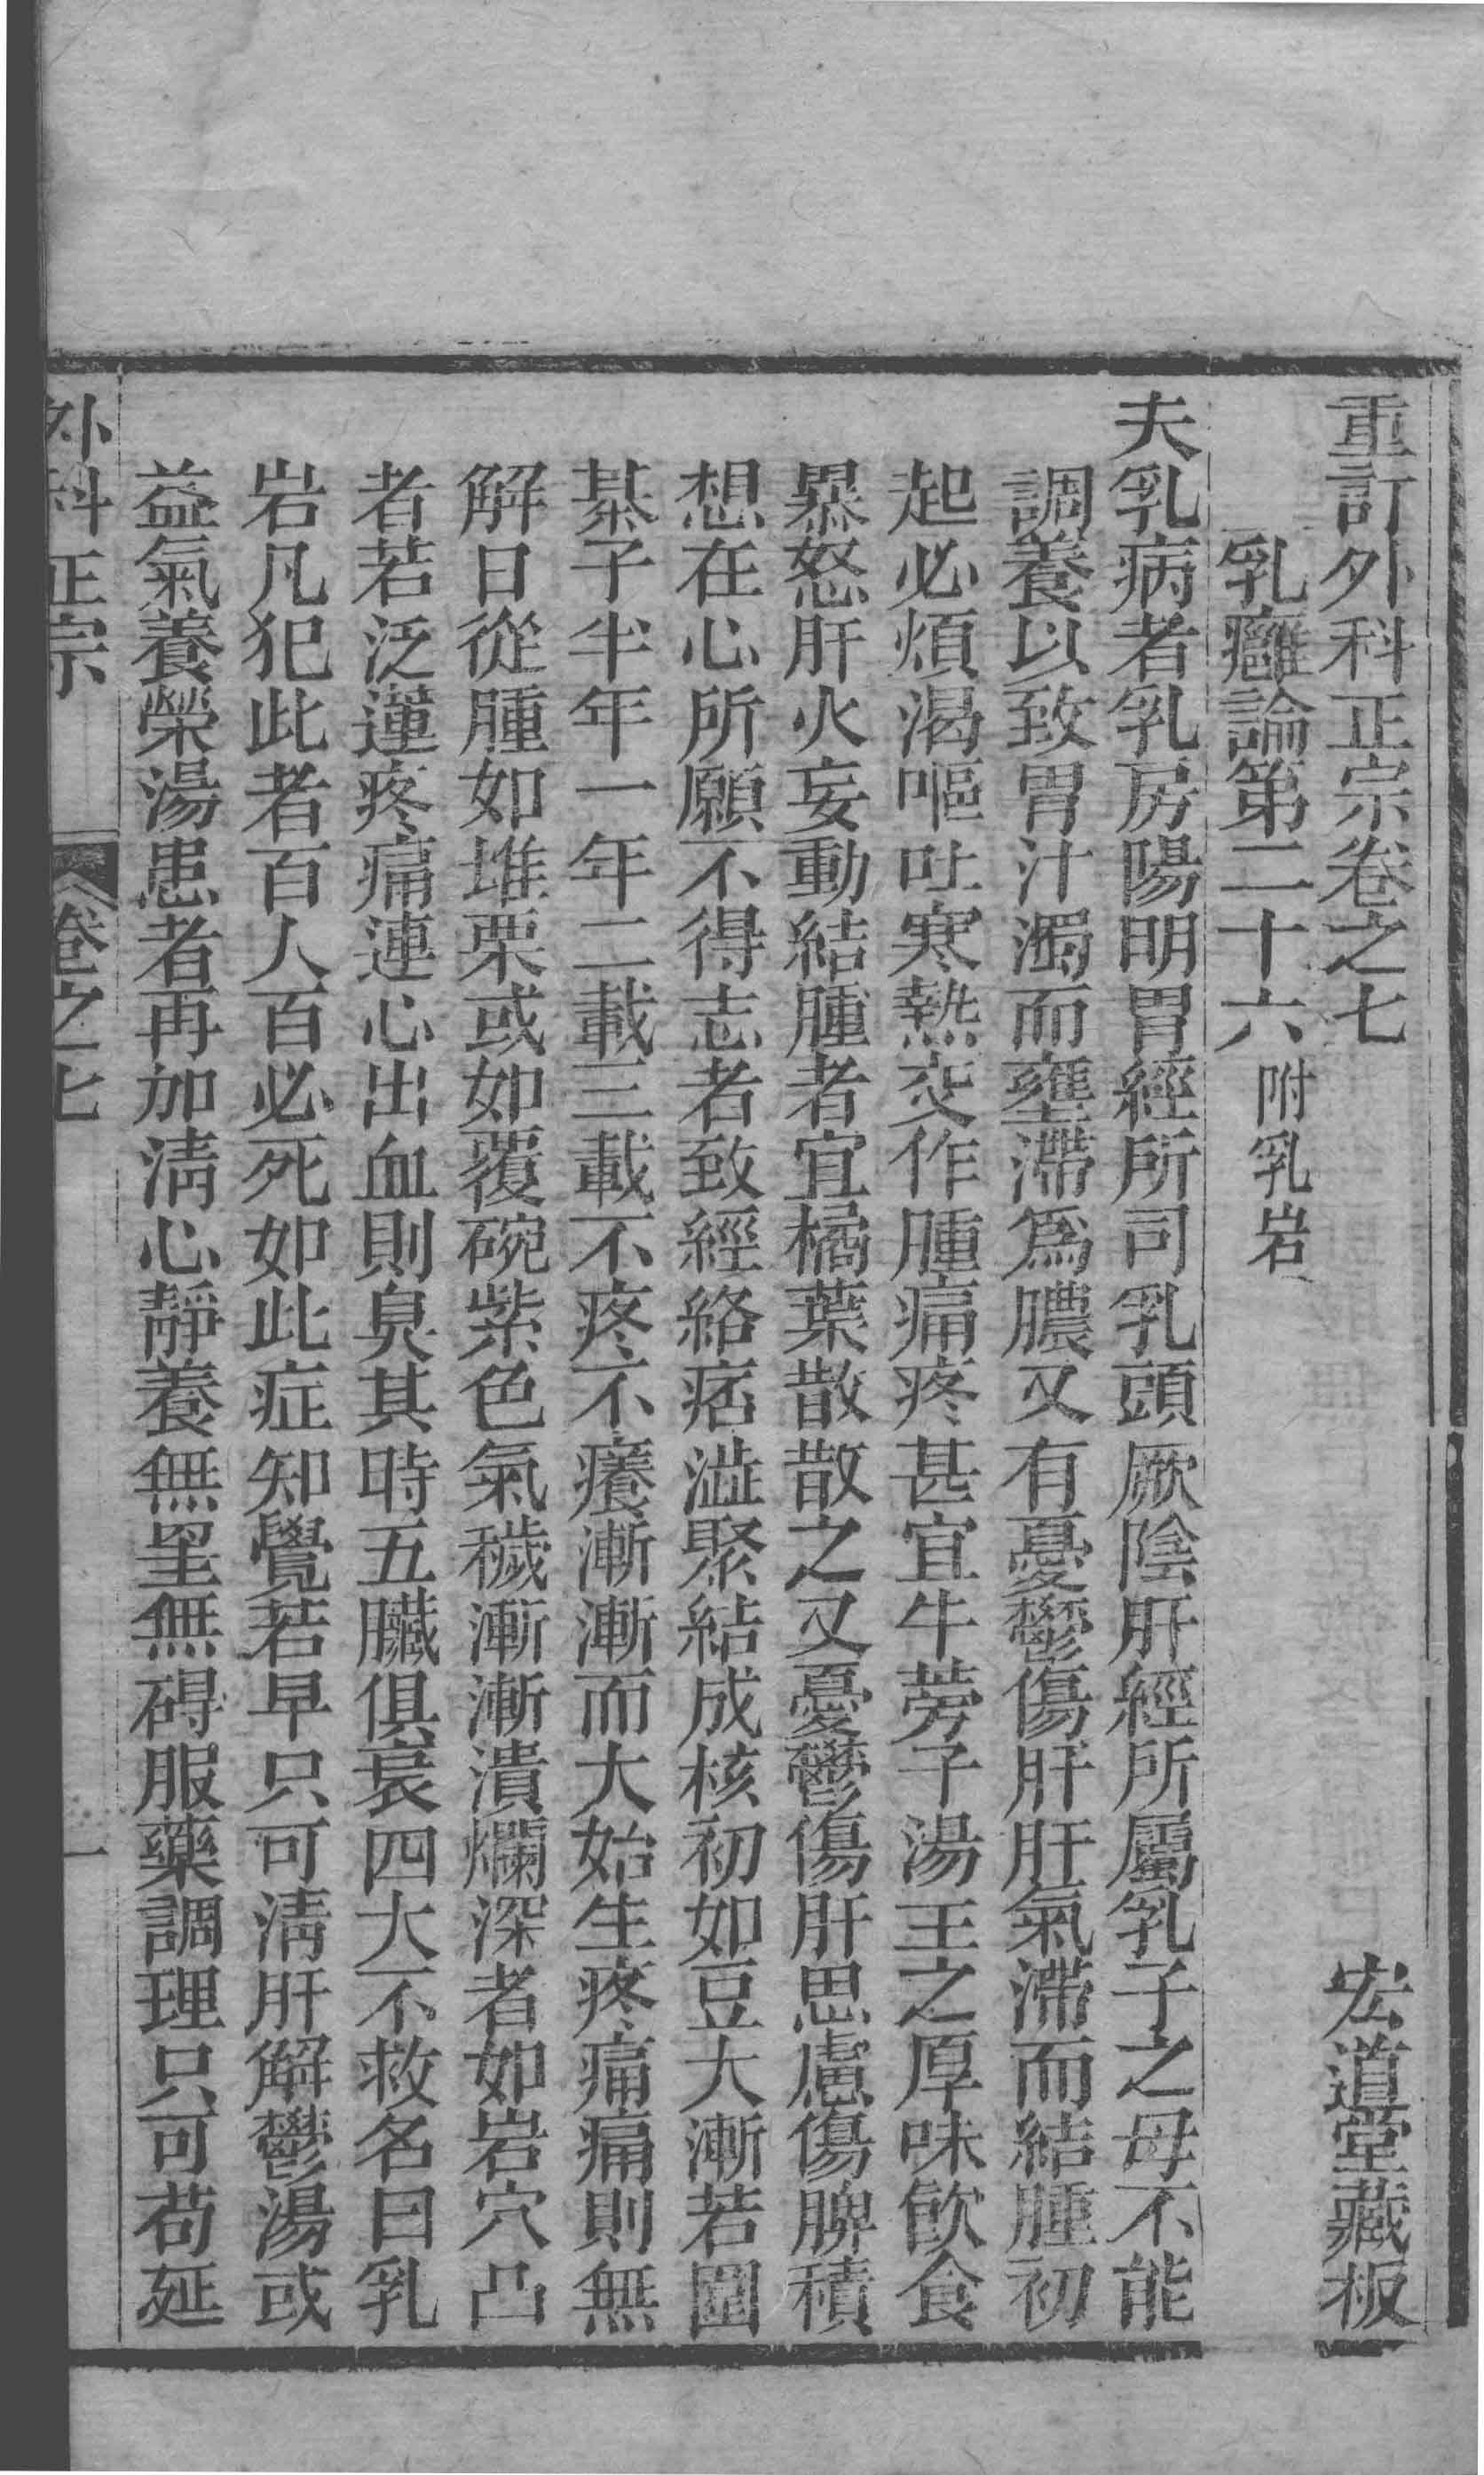 重訂外科正宗卷之七 宏道堂藏板
乳癰論第二十六 附乳岩
夫乳病者乳房陽明胃經所司乳頭厥陰肝經所屬乳子之母不能
調養以致胃汁濁而壅滯爲膿又有憂鬱傷肝肝氣滯而結腫初
起必煩渴嘔吐寒熱交作腫痛疼甚宜牛蒡子湯主之厚味飮食
暴怒肝火妄動結腫者宜橘葉散散之又憂鬱傷肝思慮傷脾積
想在心所願不得志者致經絡痞澁聚結成核初如豆大漸若圍
棊子半年一年二載三載不疼不癢漸漸而大始生疼痛痛則無
解日從腫如堆栗或如覆碗紫色氣穢漸漸潰爛深者如岩穴凸
者若泛蓮疼痛連心出血則臭其時五臟俱衰四大不救名曰乳
岩凡犯此者百人百必死如此症知覺若早只可淸肝解鬱湯或
益氣養榮湯患者再加淸心靜養無罣無碍服藥調理只可苟延
外科正宗 卷之七 一